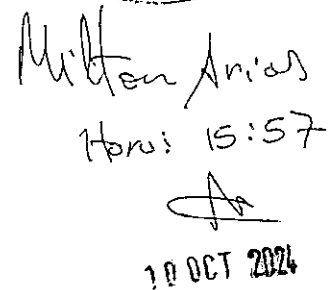 Milton Arias
Hora: 15:57
10 OCT 2024